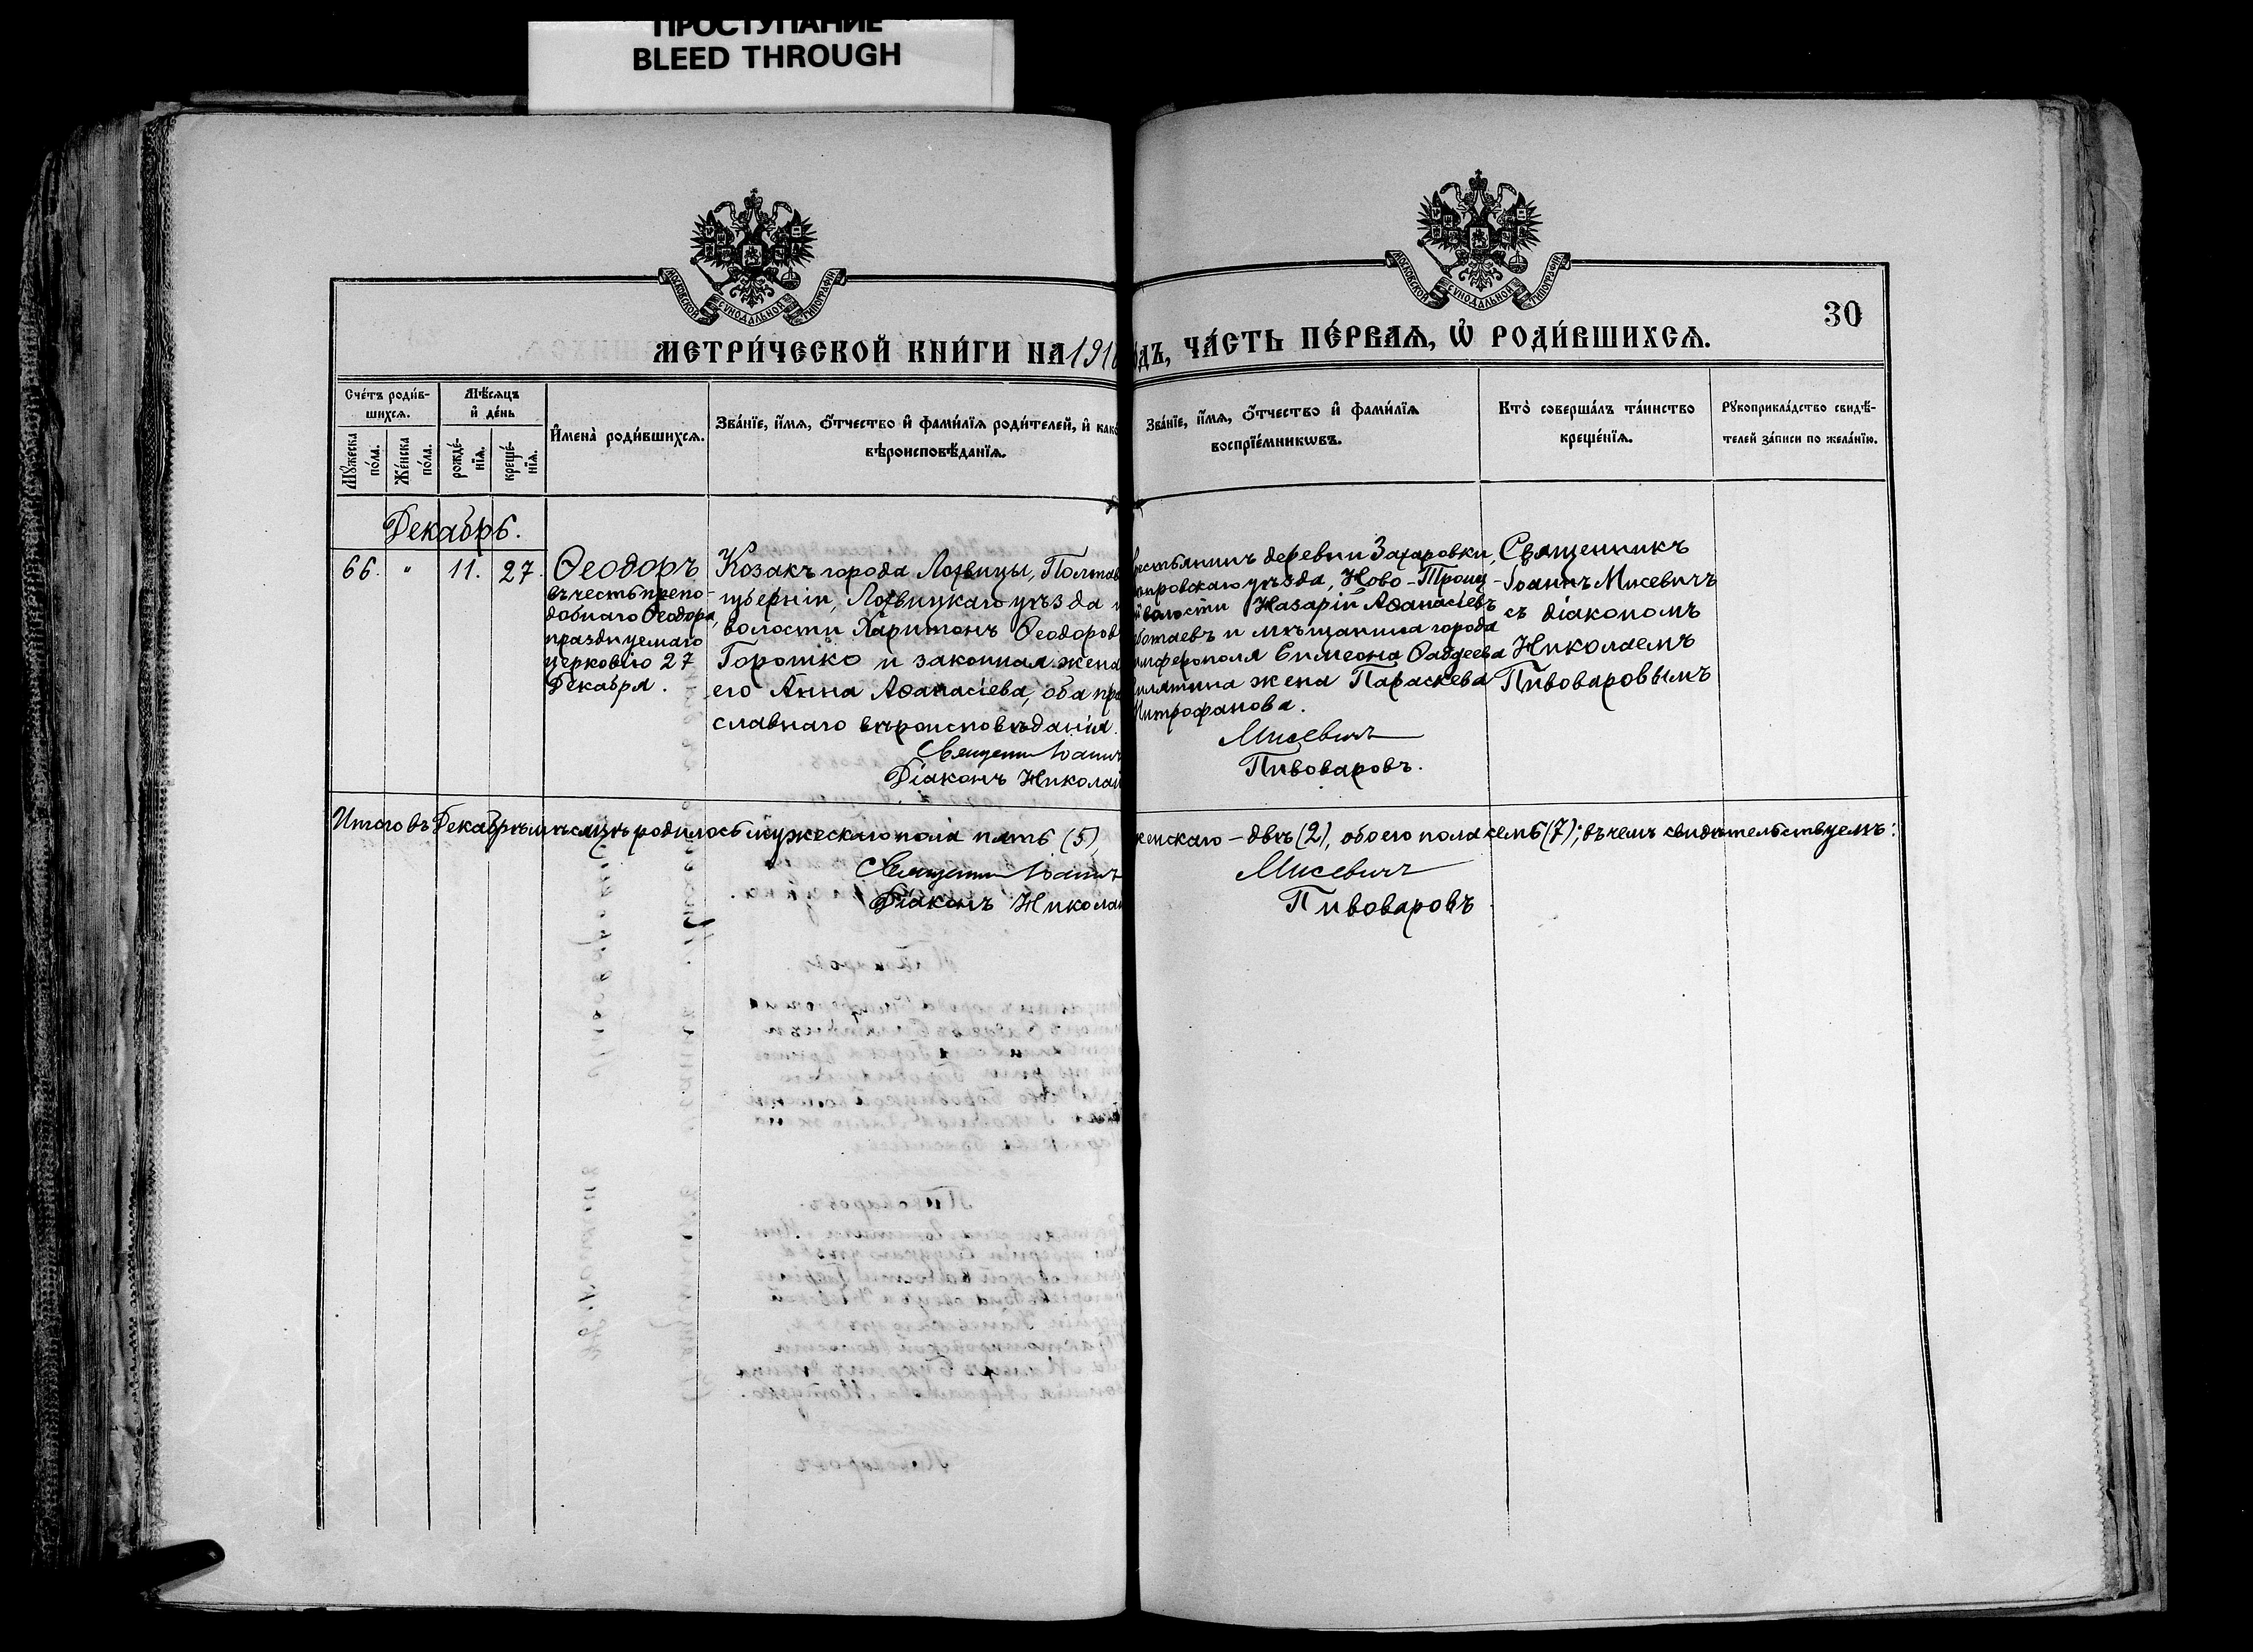 ПРОСТУПАНИЕ
BLEED THROUGH
МОСКОВСКОЙ СѴНОДАЛЬНОЙ ТИПОГРАФІИ
МОСКОВСКОЙ СѴНОДАЛЬНОЙ ТИПОГРАФІИ
30
МЕТРИ́ЧЕСКОЙ КНИ́ГИ НА 191
ОДЪ, ЧА́СТЬ ПЕ́РВАѦ, Ѡ҆ РОДИ́ВШИХСѦ.
Сче́тъ роди́в-
шихсѧ.
Мѣ́сѧцъ
и҆ де́нь
Мꙋ́жеска
по́ла.
Же́нска
по́ла.
рожде́-
нїѧ.
креще́-
нїѧ.
И҆мена̀ роди́вшихсѧ.
Зва́нїе, и҆́мѧ, ѻ҆́тчество и҆ фами́лїѧ роди́телей, и҆ како
вѣроисповѣ́данїѧ.
Зва́нїе, и҆́мѧ, ѻ҆́тчество и҆ фами́лїѧ
воспрїе́мникѡвъ.
Кто̀ соверша́лъ та́инство
креще́нїѧ.
Рꙋкоприкла́дство свидѣ́-
телей за́писи по жела́нїю.
Декабрь.
66. " 11. 27.
Ѳеодоръ
въ честь препо-
добнаго Ѳеодора,
празднуемаго
церковію 27
Декабря.
Козакъ города Лохвицы, Полтав
губерніи, Лохвицкаго уѣзда и
волости Харитонъ Ѳеодоров
Горошко и законная жена
его Анна Аѳанасіева, оба пра
славнаго вѣроисповѣданія.
Священн Іоаннъ
Діаконъ Николай
рестьянинъ деревни Захаровки,
провскаго уѣзда, Ново-Троиц-
волости Назарій Аѳанасіевъ
ботаевъ и мѣщанина города
имферополя Симеона Ѳаддеева
жена Параскева
Митрофанова.
Мисевичъ
Пивоваровъ.
Священникъ
Іоаннъ Мисевичъ
съ діакономъ
Николаемъ
Пивоваровымъ
Итого въ Декабрѣ мѣсяцѣ родилось мужескаго пола пять (5),
женскаго – двѣ (2), обоего пола семь (7); въ чемъ свидѣтельствуемъ:
Священн Іоаннъ
Діаконъ Николай
Мисевичъ
Пивоваровъ